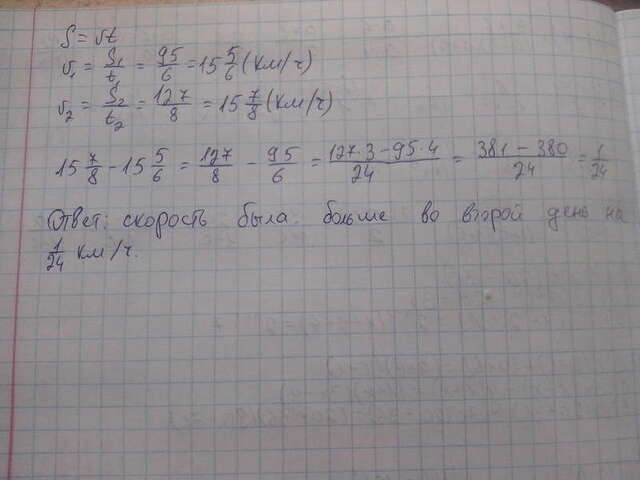 S = vt
v₁ = S₁/t₁ = 95/6 = 15 5/6 (км/ч)
v₂ = S₂/t₂ = 127/8 = 15 7/8 (км/ч)
15 7/8 - 15 5/6 = 127/8 - 95/6 = (127·3 - 95·4)/24 = (381 - 380)/24 = 1/24
Ответ: скорость была больше во второй день на
1/24 км/ч.